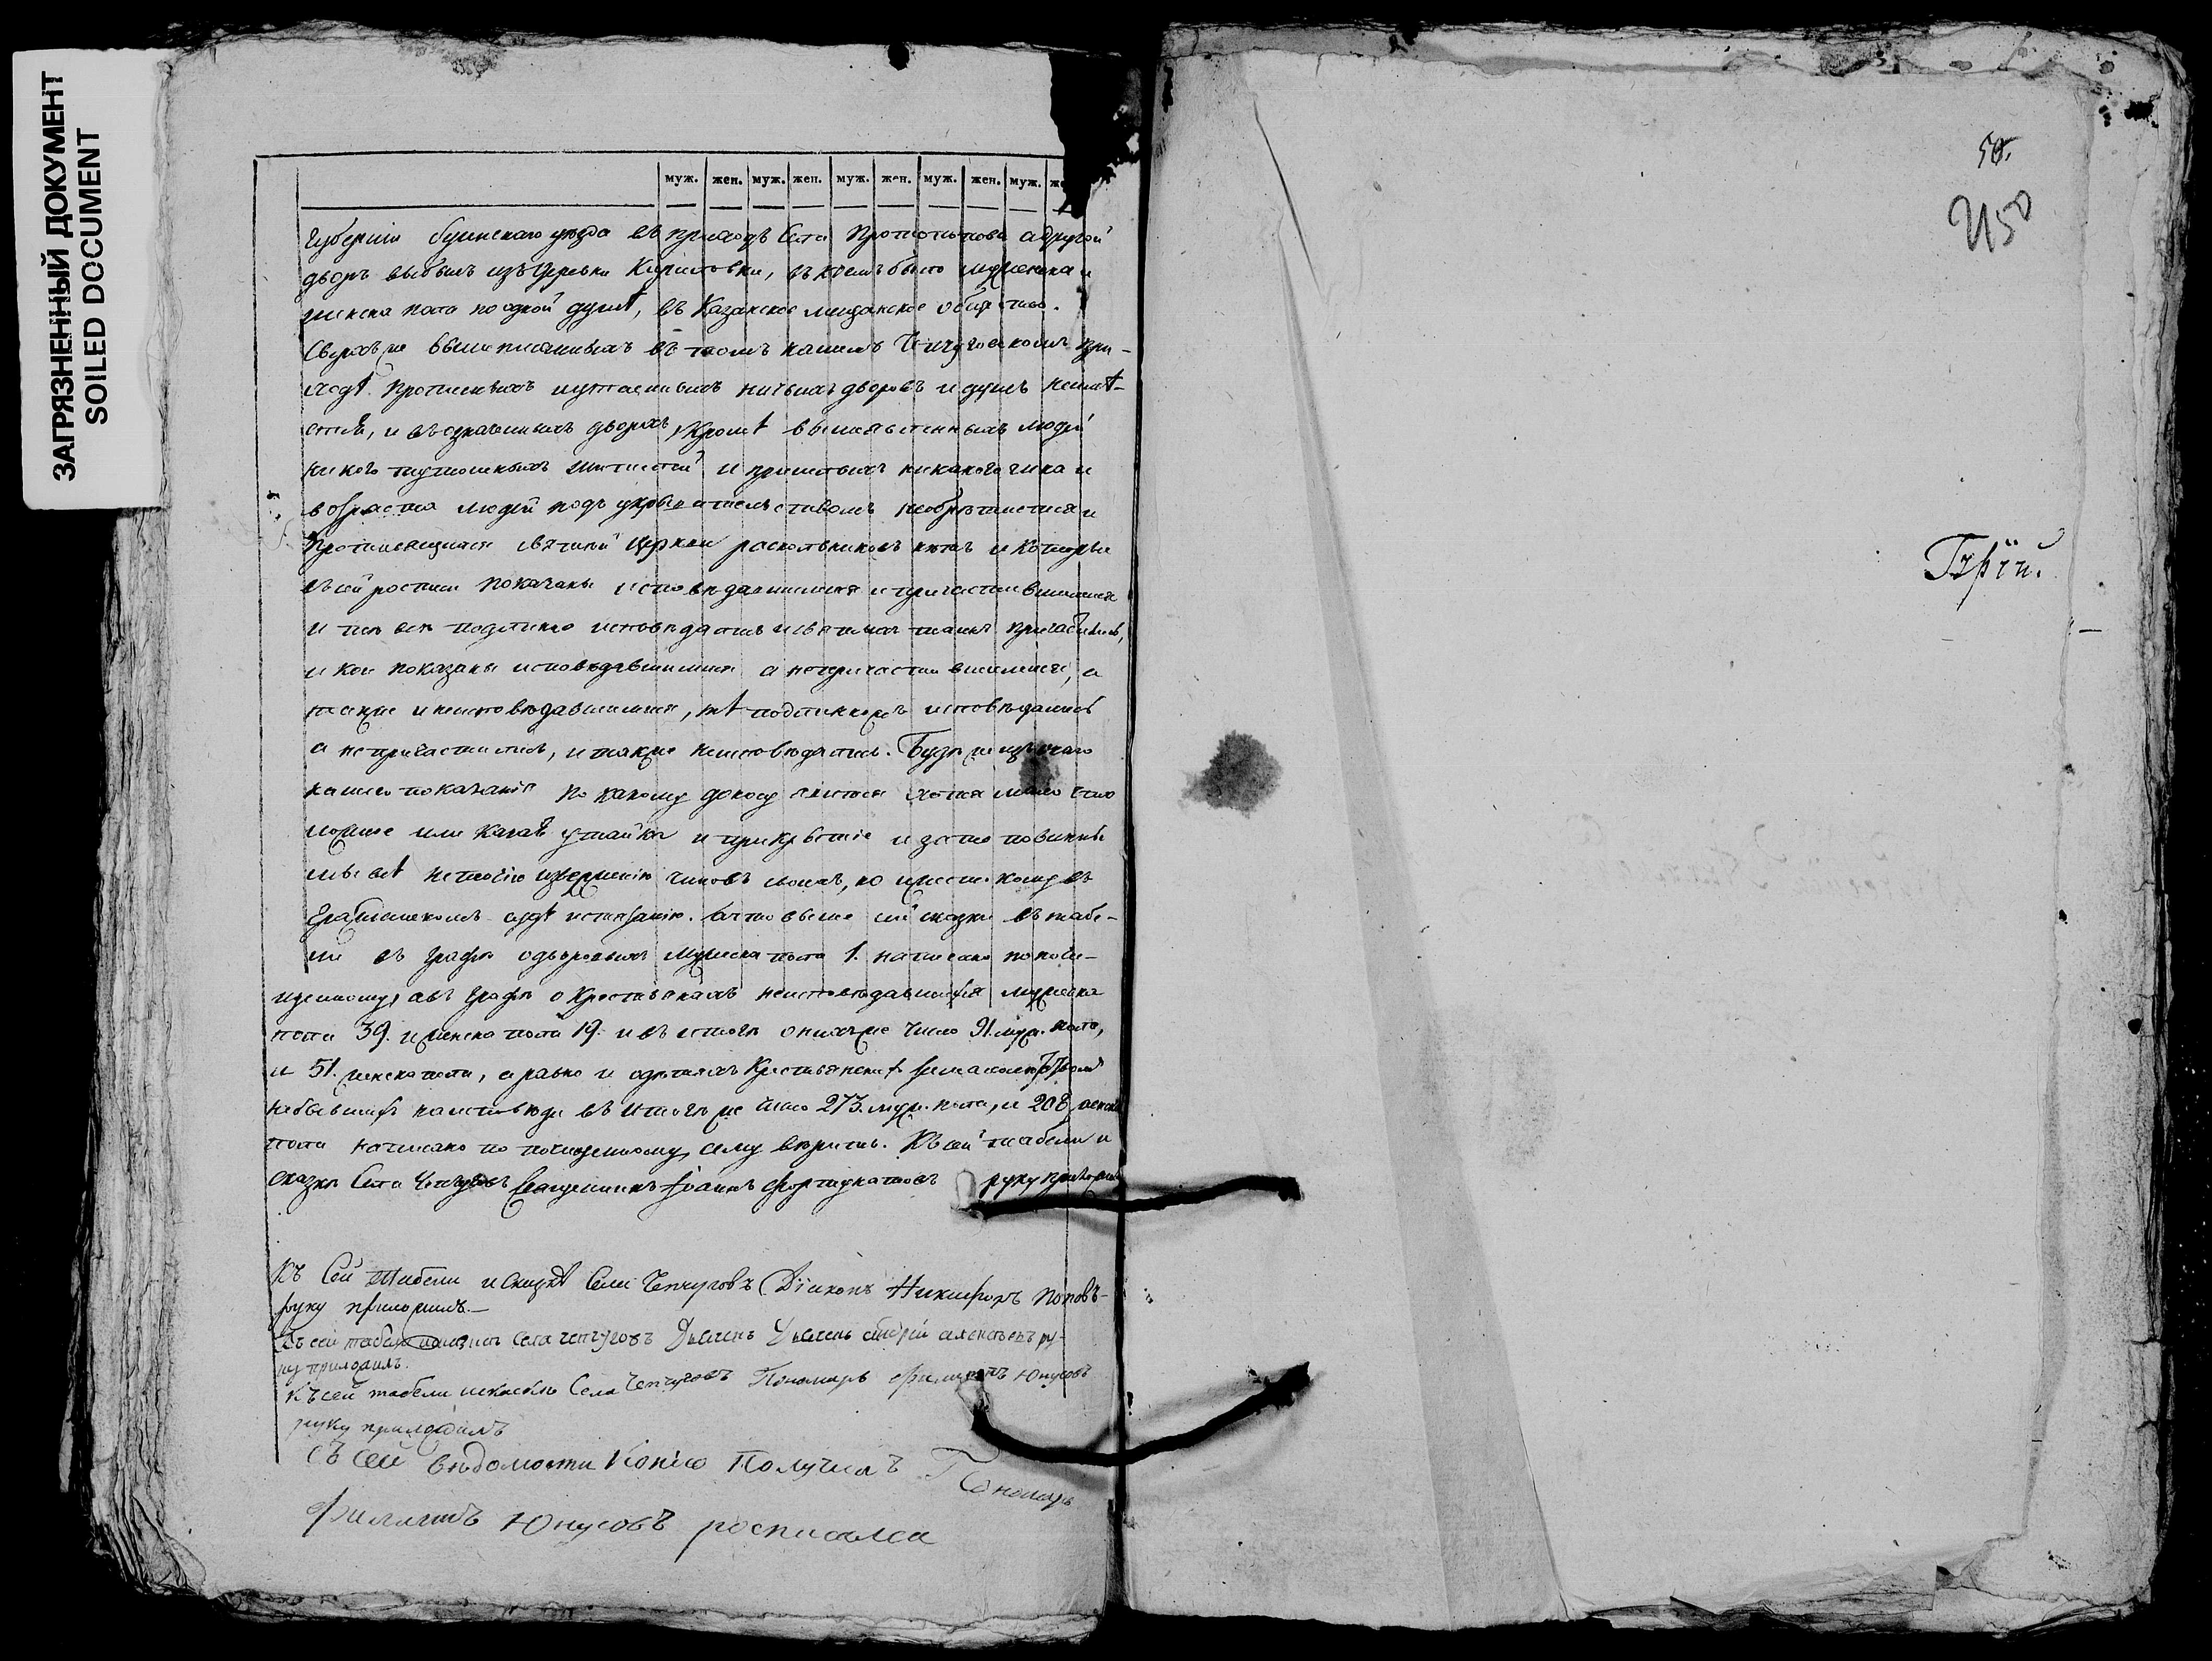 ЗАГРЯЗНЕННЫЙ ДОКУМЕНТ
SOILED DOCUMENT
муж. жен. муж. жен. муж. жен. муж. жен. муж. же
Губерніи буинскаго уѣзда въ приходъ Села Протопопова а другой
дворъ выбылъ изъ деревни, въ коемъ было мужеска и
женска пола по одной душѣ, въ Казанское мещанское общество.
Сверхъ же вышеписанныхъ въ томъ нашемъ Чепчуговскомъ при-
ходѣ прописныхъ и утаенныхъ ничьихъ дворовъ и душъ неимѣ-
ется, и въ означенныхъ дворахъ, Кромѣ вышеявленныхъ людей
ни кого тутошныхъ жителей и пришлыхъ никакого чина и
возраста людей подъ укрывательствомъ необрѣтается и
Противящихся святой Церкви раскольниковъ нѣтъ и Которые
въ сей росписи показаны исповѣдавшимися и причастившимися
и тѣ всѣ подлинно исповѣдались и святыхъ таинъ причастились,
и кои показаны исповѣдавшимися а непричастившимися, а
также и неисповѣдавшимися, тѣ подлинно исповѣдались
а непричастились, и также неисповѣдались. Будѣ же изъ сего
нашего показанія по какому доносу явится хотя мало что
ложное или какая утайка и прикрытіе и за то повинны
мы всѣ не точію изверженію чиновъ своихъ, но и жестокому въ
Гражданскомъ судѣ истязанію. А что выше сей сказки въ табе-
ли въ графѣ о дворовыхъ мужеска пола 1. написано по почи-
щенному, а въ графѣ о Крестьянахъ неисповѣдавшихся мужеска
пола 39. и женска пола 19. и въ итогѣ о нихъ же число 91. муж. пола,
и 51. женска пола, а равно и о дѣтяхъ Крестьянскихъ за малолѣтствомъ
небывшихъ на исповѣди въ Итогѣ же число 273. муж. пола, и 208 женска
пола написано по почищенному, сему вѣрить. Къ сей табели и
сказкѣ Села Чепчуговъ Священникъ Іоаннъ Фортунатовъ руку приложилъ
Къ Сей Табели и Сказкѣ Села Чепчуговъ Діаконъ Никифоръ Поповъ-
руку приложилъ.—
Къ сей табели Села Чепчуговъ Дьячекъ Андрей Алексѣевъ ру-
ку приложилъ.
Къ сей табели и сказкѣ Села Чепчуговъ Пономарь Филиппъ Юнусовъ
руку приложилъ
Съ Сей вѣдомости Копію Получилъ Пономарь
Филиппъ Юнусовъ росписался
50.
450